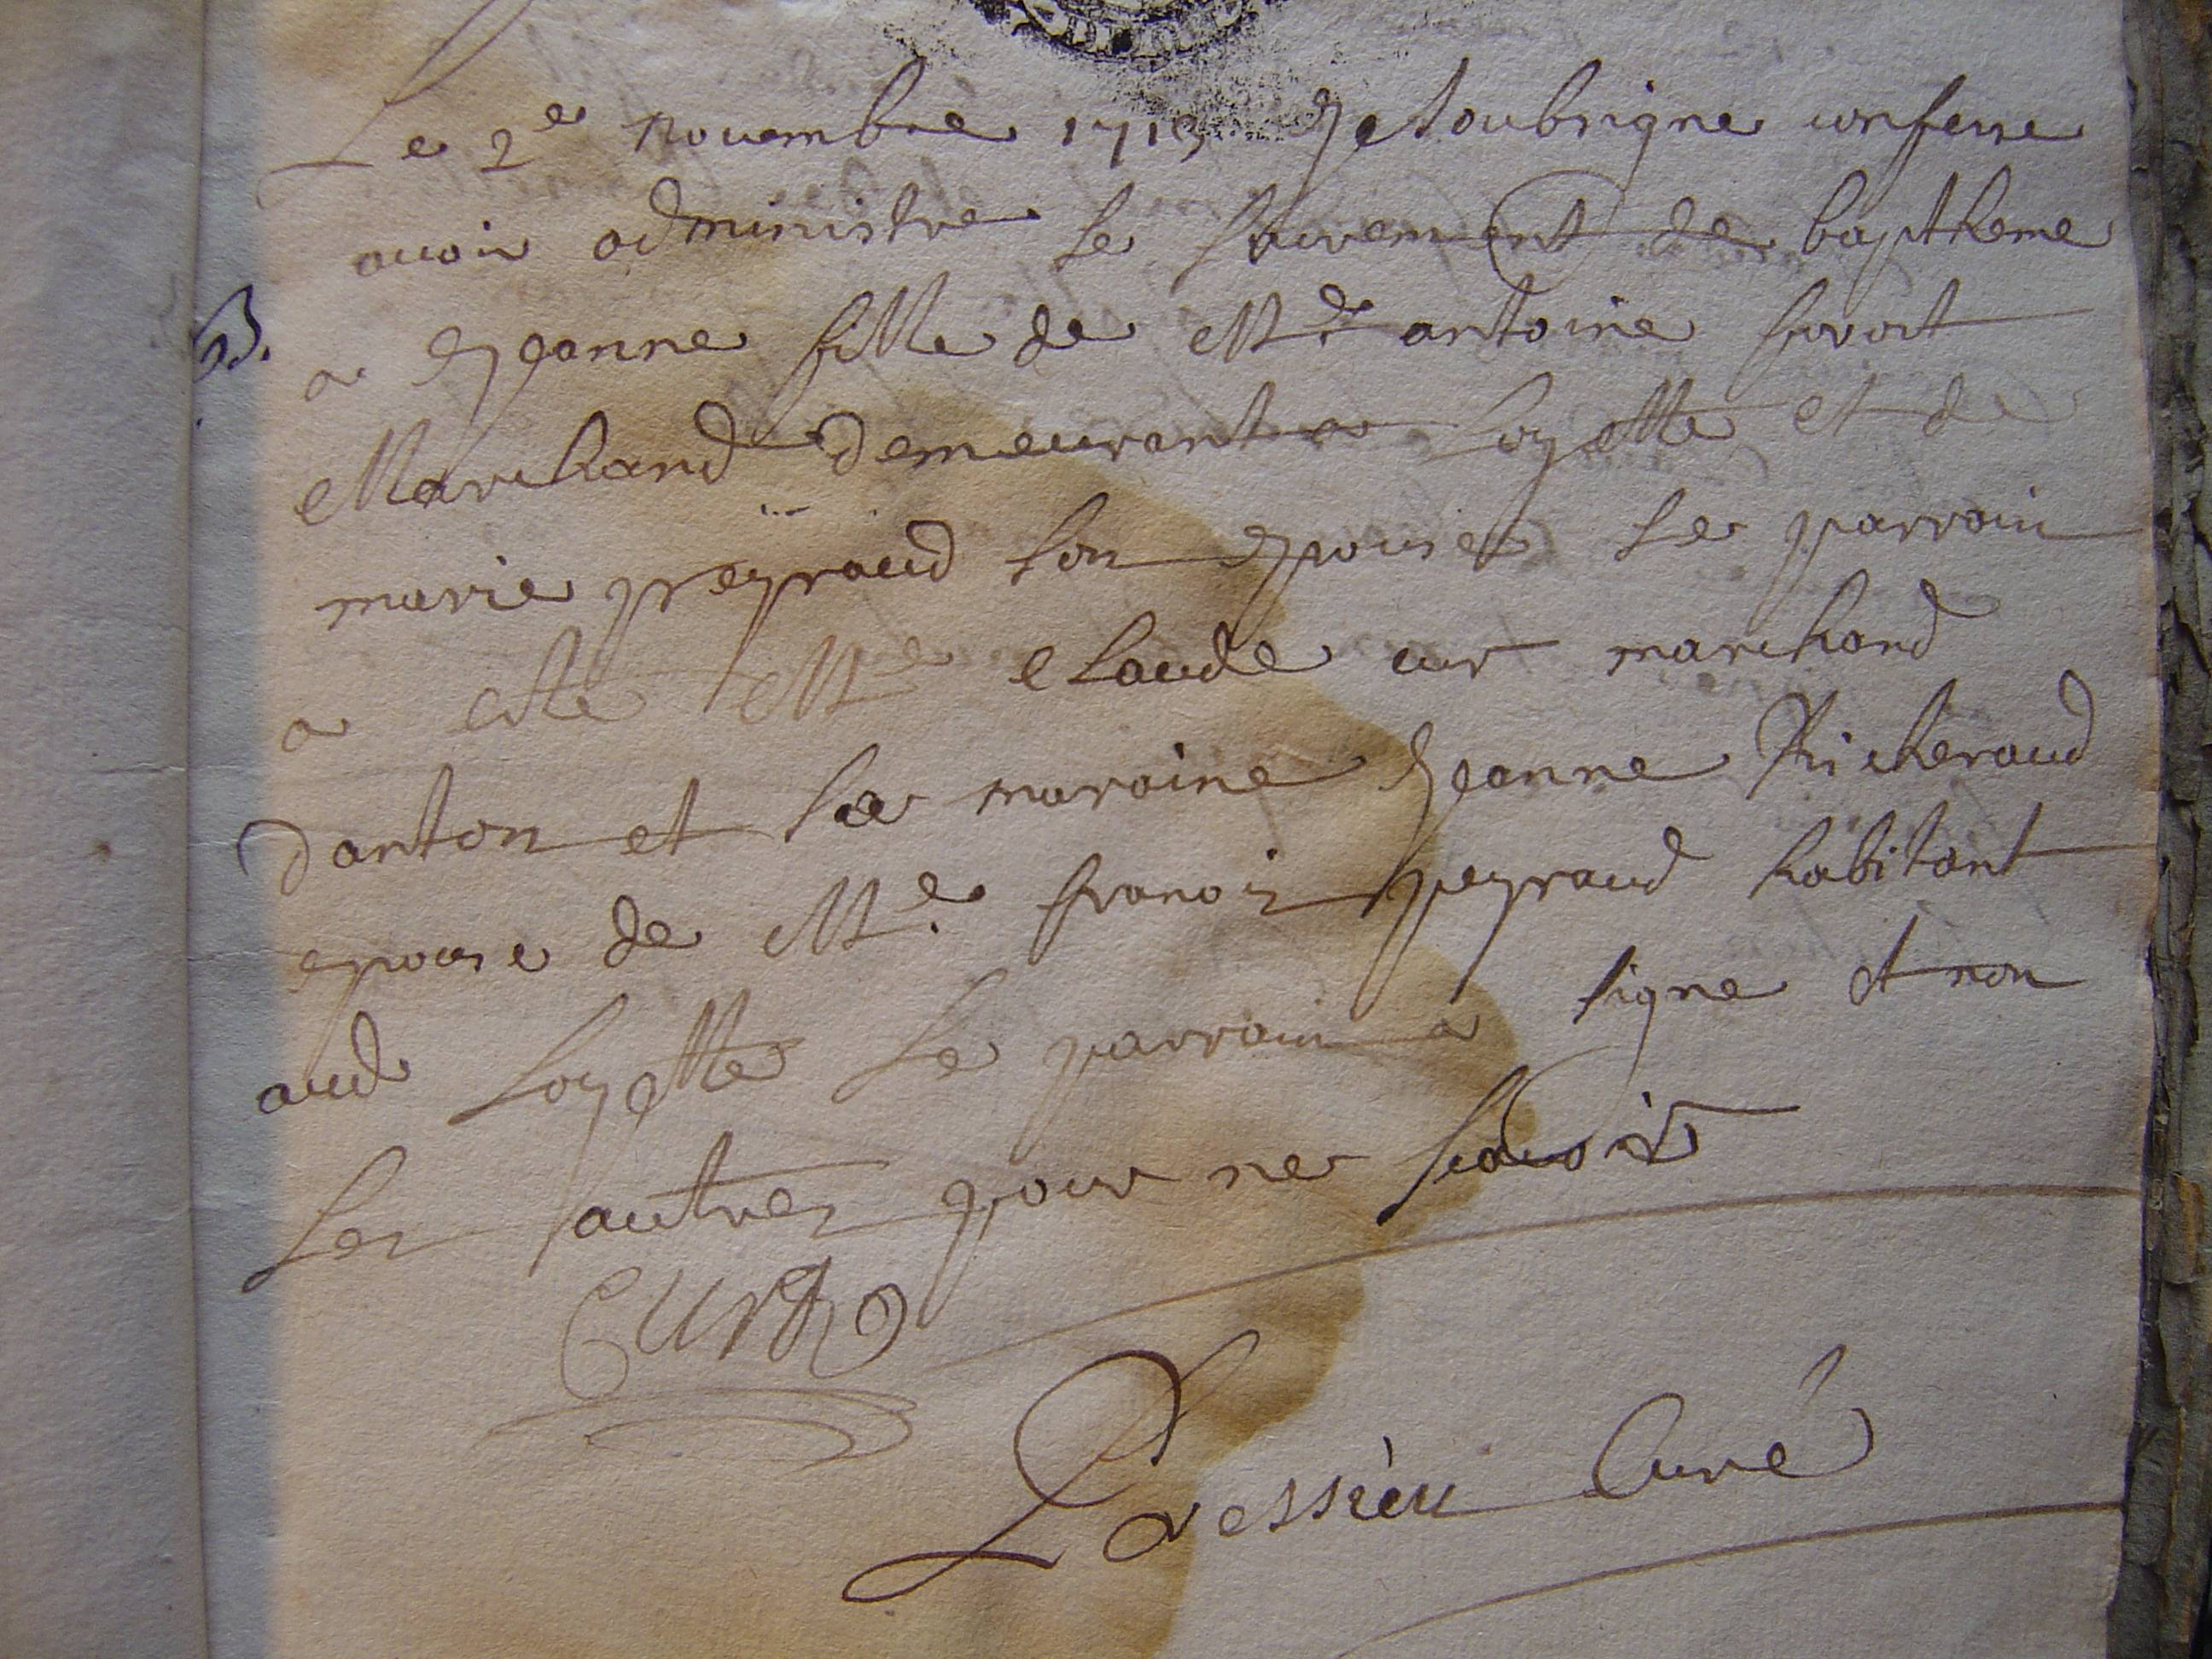 Le 2e novembre 1715 Je soubsigne confesse
avoir administre le sacrement de baptheme
B.
a Jeanne fille de Mr antoine
Marchand demeurant a Loyette et de
marie peyraud son epouse le parrain
a este Me claude cur marchand
danton et la maraine Jeanne Richeraud
epouse de Me. francois peyraud habitant
aud Loyette le parrain a signe et non
les autres pour ne scavoir
Curt
Curé